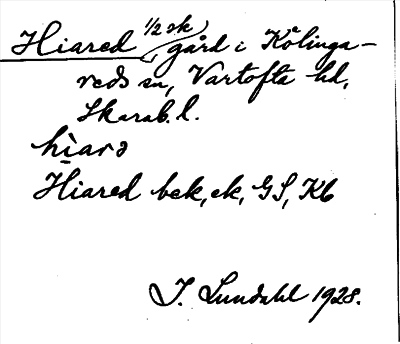 Hiared 1/2 sk gård i Kölinga-
reds sn, Vartofta hd,
Skarab. l.
hìarə
Hiared bek, ek, GS, Kb
I. Lundahl 1928.